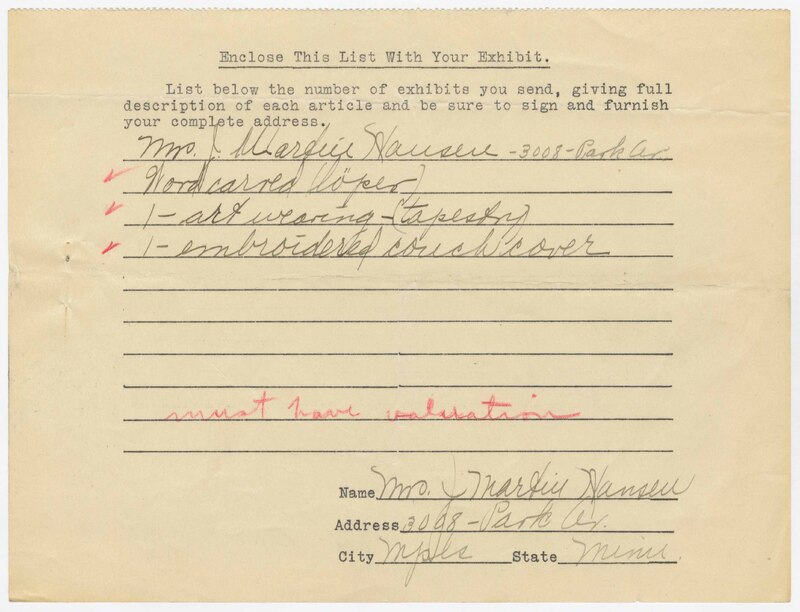 Enclose This List With Your Exhibit.
List below the number of exhibits you send, giving full
description of each article and be sure to sign and furnish
your complete address.
Mrs. J. Martin Hansen - 3008 - Park Av.
carved löper)
1 - art weaving - (tapestry)
1 - embroidered couch cover
must have valuation
Name Mrs. J. Martin Hansen
Address 3008 - Park Av.
City Mpls State Minn.